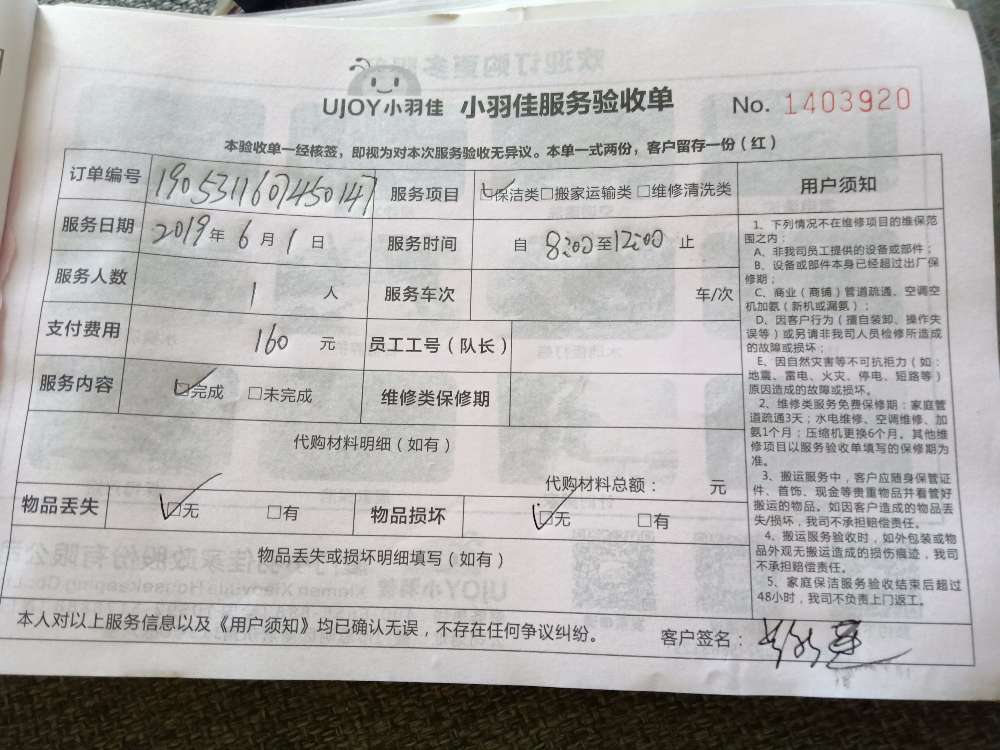 UJOY小羽佳 小羽佳服务验收单 No. 1403920
本验收单一经核签，即视为对本次服务验收无异议。本单一式两份，客户留存一份（红）
订单编号 1905311607450147 服务项目 ☑保洁类□搬家运输类□维修清洗类
服务日期 2019年6月1日 服务时间 自 8:00至12:00 止
服务人数 1 人 服务车次 车/次
支付费用 160 元 员工工号（队长）
服务内容 ☑完成 □未完成 维修类保修期
代购材料明细（如有）
代购材料总额： 元
物品丢失 ☑无 □有 物品损坏 ☑无 □有
物品丢失或损坏明细填写（如有）
本人对以上服务信息以及《用户须知》均已确认无误，不存在任何争议纠纷。 客户签名：
用户须知
1、下列情况不在维修项目的维保范
围之内：
A、非我司员工提供的设备或部件；
B、设备或部件本身已经超过出厂保
修期；
C、商业（商铺）管道疏通、空调空
机加氨（新机或漏氨）；
D、因客户行为（擅自装卸、操作失
误等）或另请非我司人员检修所造成
的故障或损坏；
E、因自然灾害等不可抗拒力（如：
地震、雷电、火灾、停电、短路等）
原因造成的故障或损坏。
2、维修类服务免费保修期：家庭管
道疏通3天；水电维修、空调维修、加
氨1个月；压缩机更换6个月。其他维
修项目以服务验收单填写的保修期为
准。
3、搬运服务中，客户应随身保管证
件、首饰、现金等贵重物品并看管好
搬运的物品。如因客户造成的物品丢
失/损坏，我司不承担赔偿责任。
4、搬运服务验收时，如外包装或物
品外观无搬运造成的损伤痕迹，我司
不承担赔偿责任。
5、家庭保洁服务验收结束后超过
48小时，我司不负责上门返工。